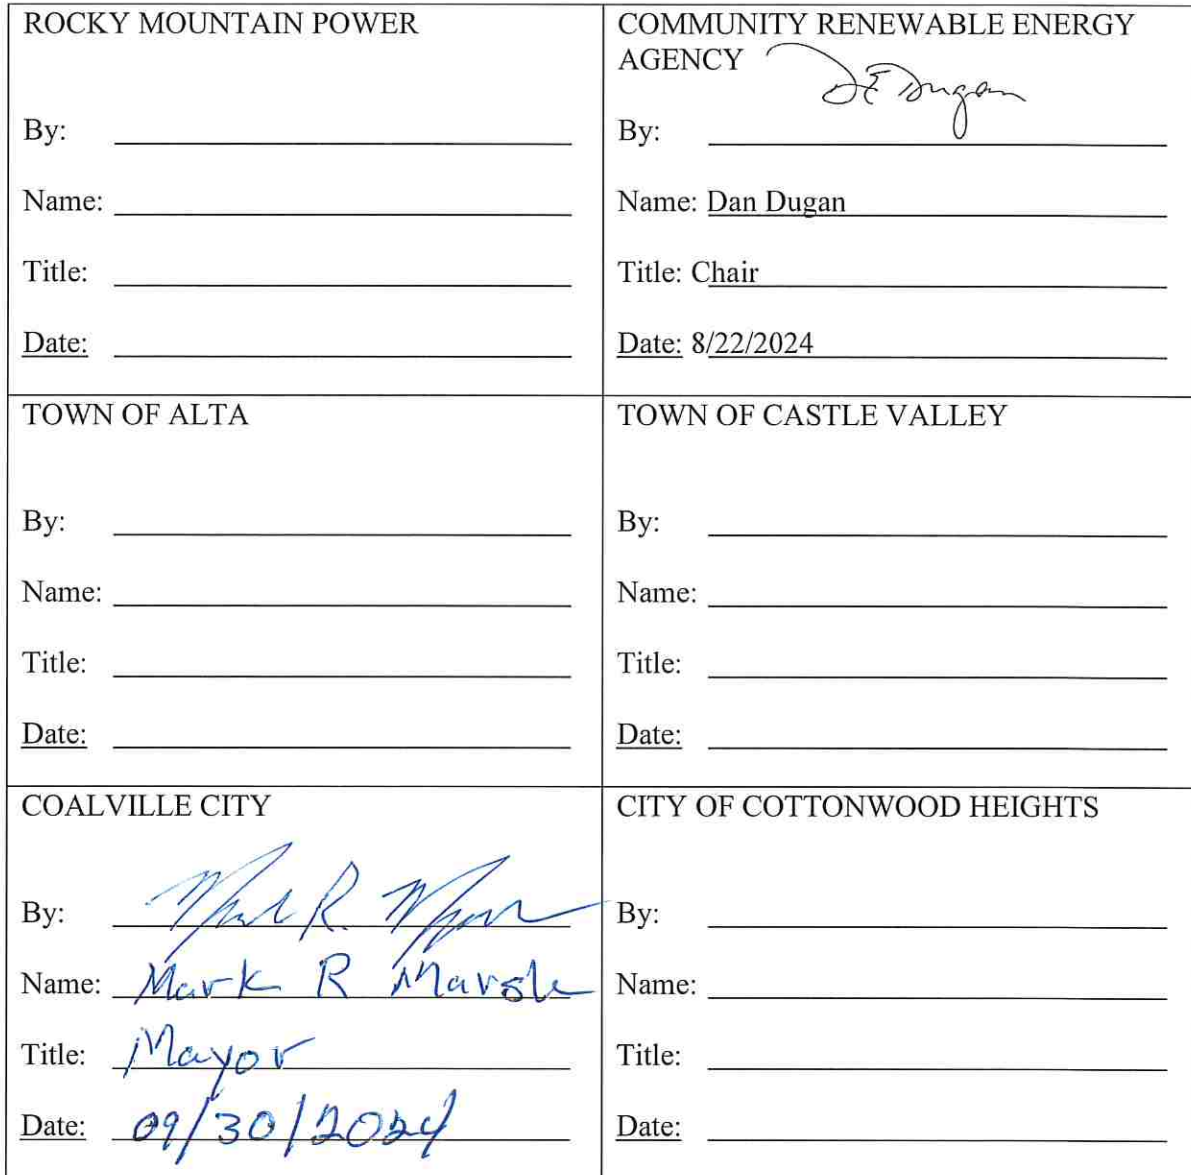 ROCKY MOUNTAIN POWER
By:
Name:
Title:
Date:
COMMUNITY RENEWABLE ENERGY
AGENCY
DE Dugan
By:
Name: Dan Dugan
Title: Chair
Date: 8/22/2024
TOWN OF ALTA
By:
Name:
Title:
Date:
TOWN OF CASTLE VALLEY
By:
Name:
Title:
Date:
COALVILLE CITY
By: Mark R.
Name: Mark R Marsh
Title: Mayor
Date: 09/30/2024
CITY OF COTTONWOOD HEIGHTS
By:
Name:
Title:
Date: